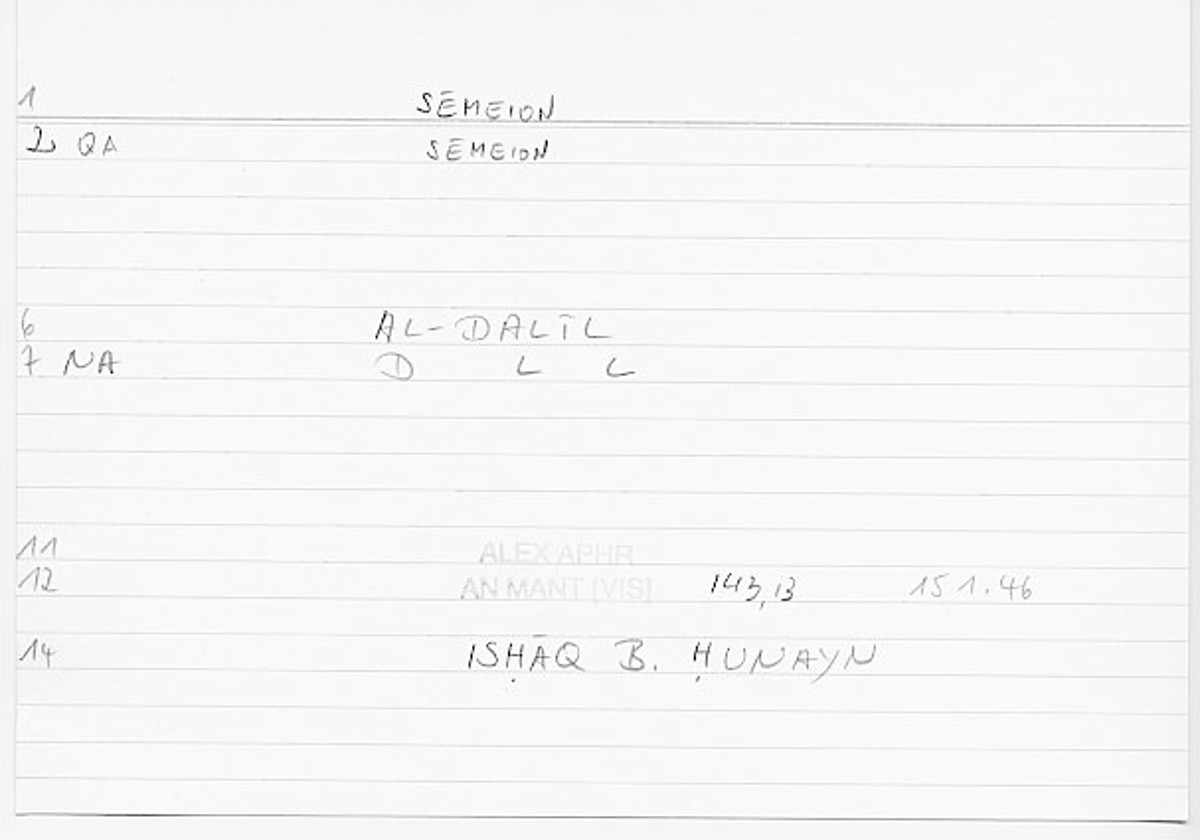 1 SĒMEION
2 QA SĒMEION
6 AL-DALĪL
7 NA D L L
11 ALEX APHR
12 AN MANT [VIS] 143,13 151.46
14 ISḤĀQ B. ḤUNAYN